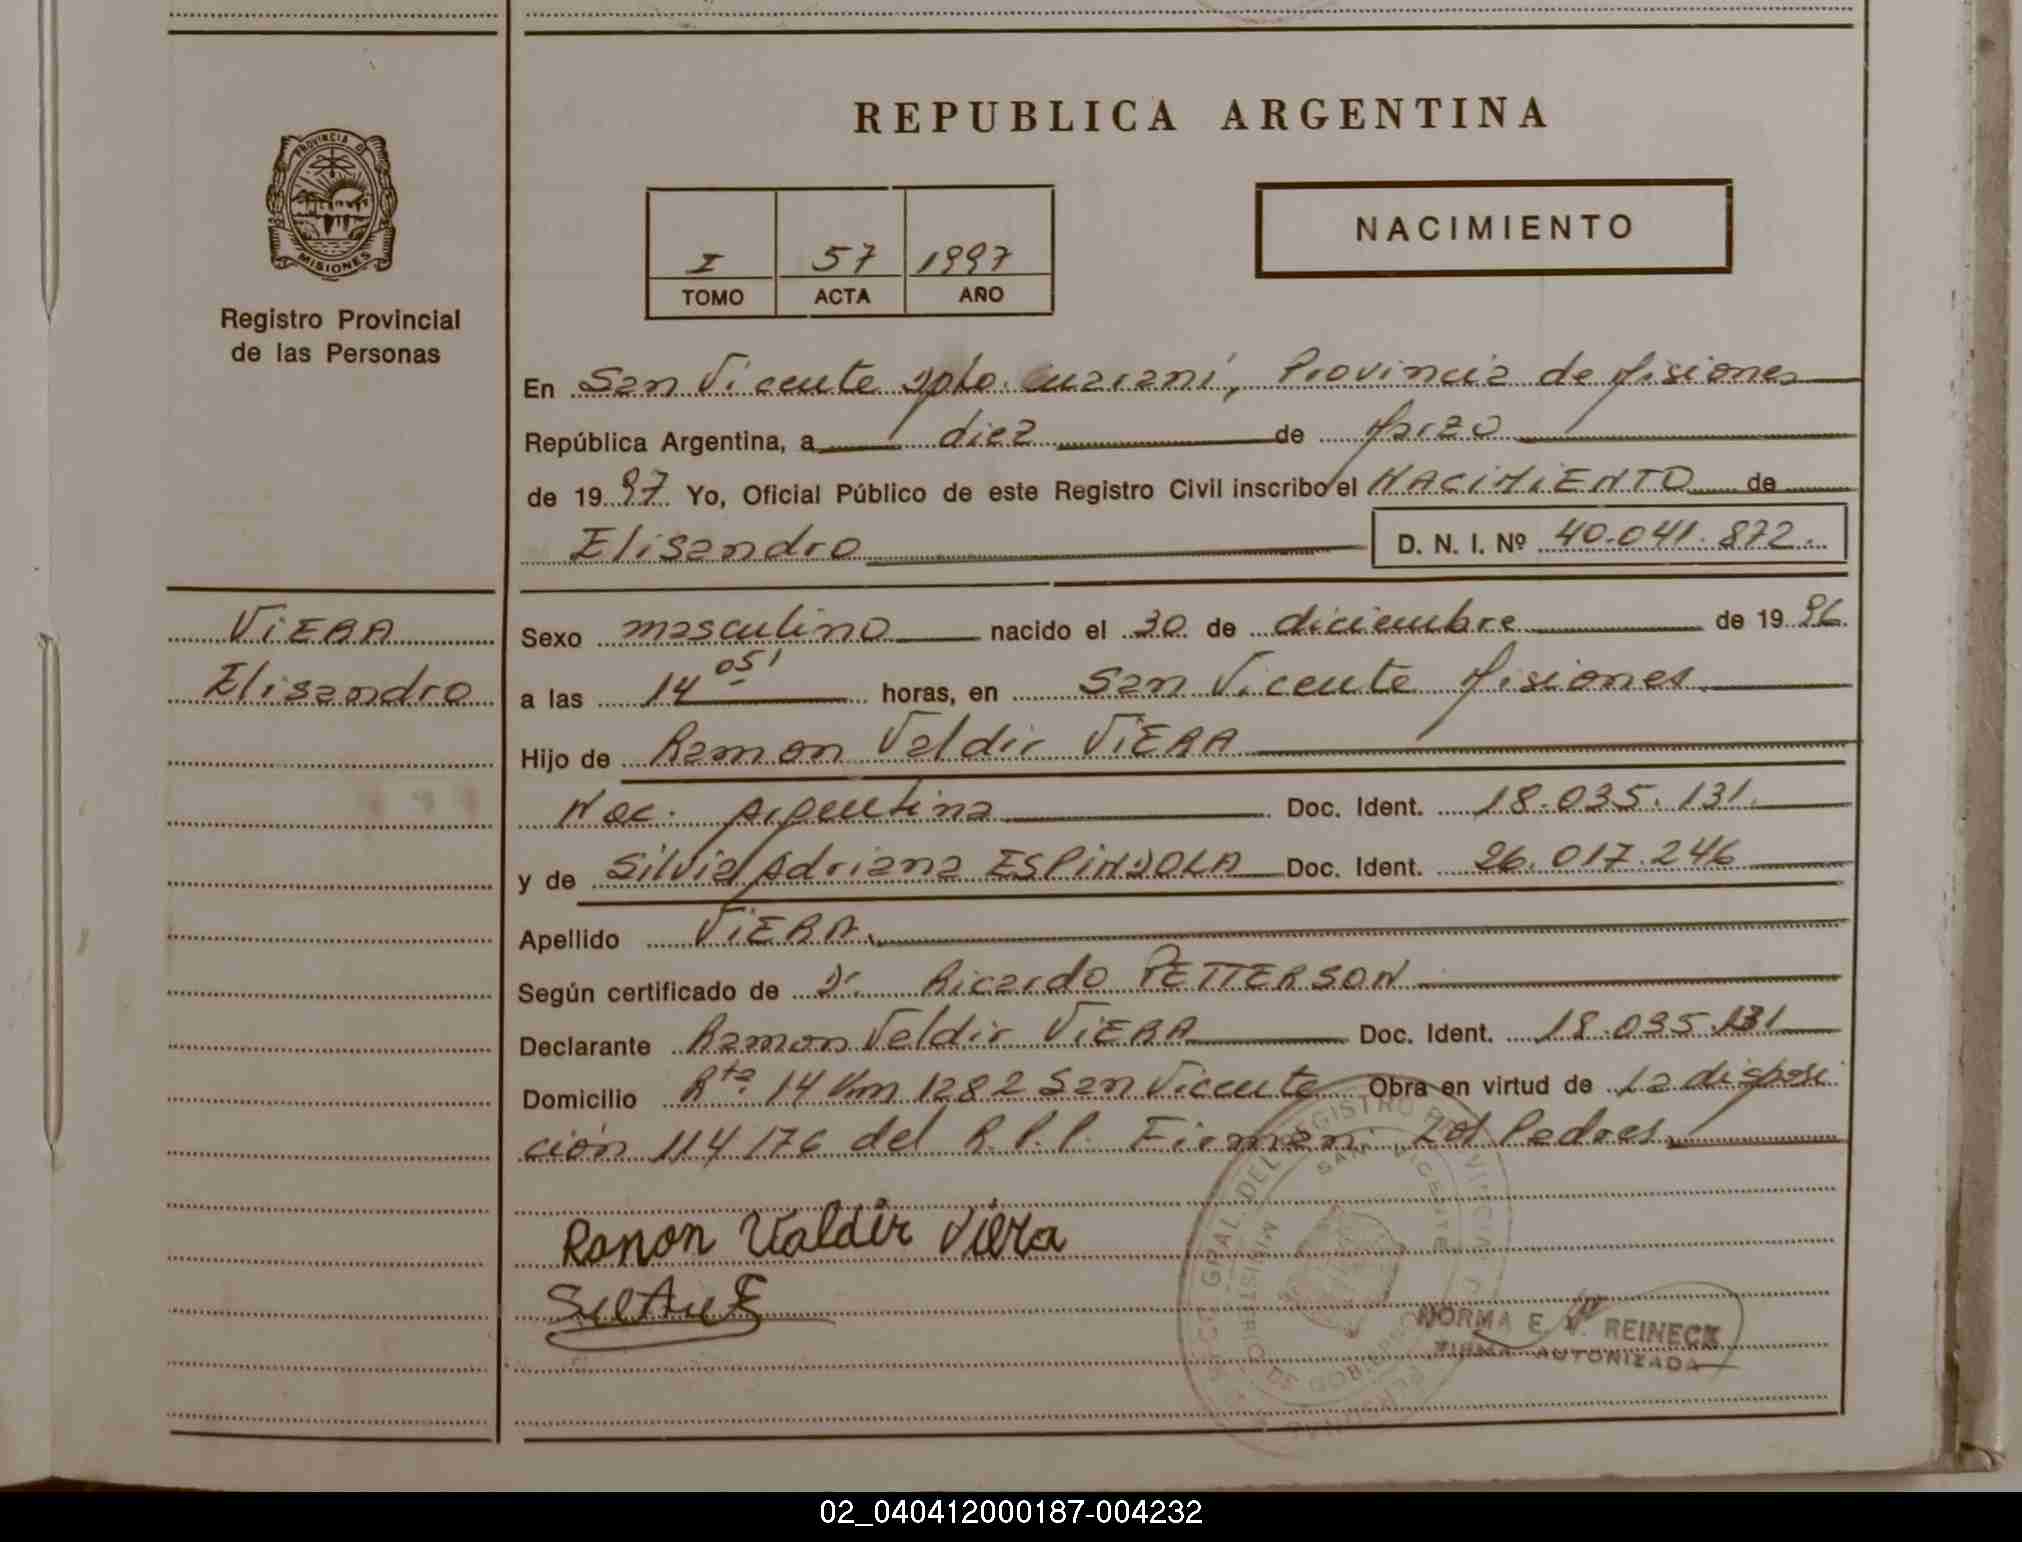 REPUBLICA ARGENTINA
PROVINCIA D
MISIONES
Registro Provincial
de las Personas
I 57 1997
TOMO ACTA AÑO
NACIMIENTO
En San Vicente Dpto. Guaraní, Provincia de Misiones
República Argentina, a diez de Marzo
de 1997 Yo, Oficial Público de este Registro Civil inscribo el NACIMIENTO de
Elisandro D. N. I. Nº 40.041.872.
VIERA
Elisandro
Sexo masculino nacido el 30 de diciembre de 1996.
a las 14 05' horas, en San Vicente Misiones.
Hijo de Ramon Valdir VIERA
Nac. Argentina Doc. Ident. 18.035.131.
y de Silvia Adriana ESPINDOLA Doc. Ident. 26.017.246
Apellido VIERA.
Según certificado de Dr. Ricardo PETTERSON
Declarante Ramon Valdir VIERA Doc. Ident. 18.035.131
Domicilio Rta. 14 Km 1282 San Vicente Obra en virtud de La disposi
ción 114/76 del R.P.P. Firman: Los Padres
Ramon Valdir Viera
NORMA E. V. REINECK
FIRMA AUTORIZADA
02_040412000187-004232